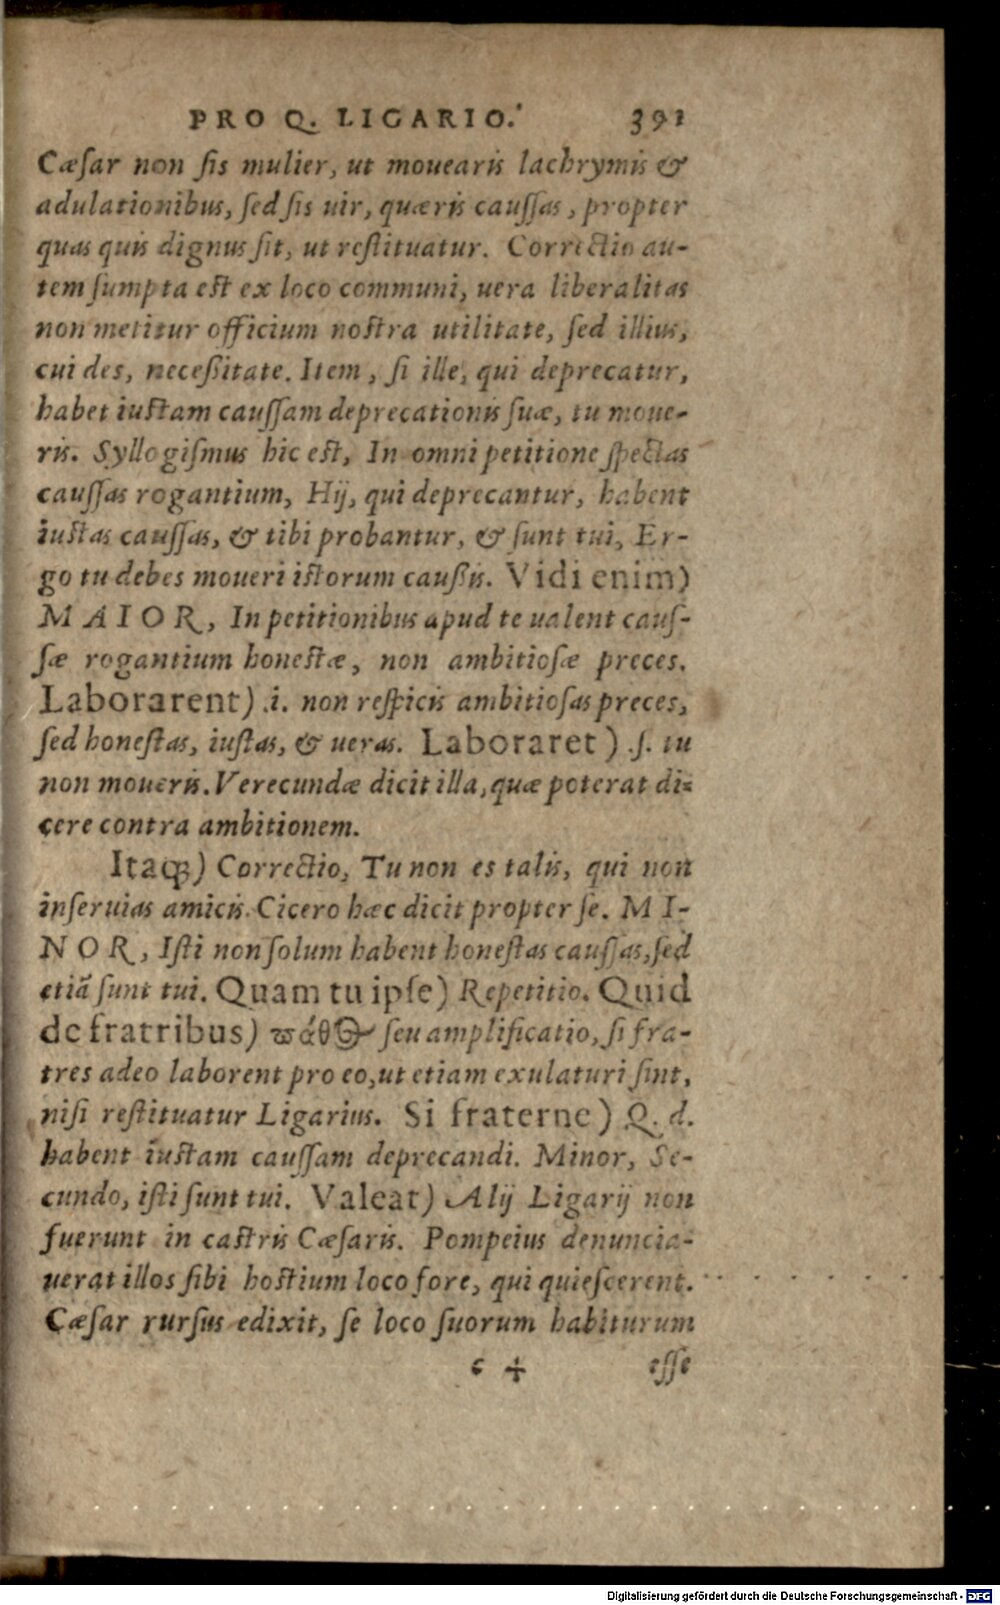 PRO Q. LIGARIO. 391
Cæſar non ſis mulier, ut mouearis lachrymis &
adulationibus, ſed ſis uir, quæris cauſſas, propter
quas quis dignus ſit, ut reſtituatur. Correctio au-
tem ſumpta eſt ex loco communi, uera liberalitas
non metitur officium noſtra utilitate, ſed illius,
cui des, neceßitate. Item, ſi ille, qui deprecatur,
habet iuſtam cauſſam deprecationis ſuæ, tu moue-
ris. Syllogiſmus hic eſt, In omni petitione ſpectas
cauſſas rogantium, Hij, qui deprecantur, habent
iuſtas cauſſas, & tibi probantur, & ſunt tui, Er-
go tu debes moueri iſtorum caußis. Vidi enim)
MAIOR, In petitionibus apud te ualent cauſ-
ſæ rogantium honeſtæ, non ambitioſæ preces.
Laborarent) .i. non reſpicis ambitioſas preces,
ſed honeſtas, iuſtas, & ueras. Laboraret) .ſ. tu
non moueris. Verecundæ dicit illa, quæ poterat di-
cere contra ambitionem.
Itaqꝫ) Correctio, Tu non es talis, qui non
inſeruias amicis. Cicero hæc dicit propter ſe. MI-
NOR, Iſti non ſolum habent honeſtas cauſſas, ſed
etiã ſunt tui. Quam tu ipſe) Repetitio. Quid
de fratribus) πάθος ſeu amplificatio, ſi fra-
tres adeo laborent pro eo, ut etiam exulaturi ſint,
niſi reſtituatur Ligarius. Si fraterne) Q. d.
habent iuſtam cauſſam deprecandi. Minor, Se-
cundo, iſti ſunt tui. Valeat) Alij Ligarij non
fuerunt in caſtris Cæſaris. Pompeius denuncia-
uerat illos ſibi hoſtium loco fore, qui quieſcerent.
Cæſar rurſus edixit, ſe loco ſuorum habiturum
c 4 eſſe
Digitalisierung gefördert durch die Deutsche Forschungsgemeinschaft - DFG